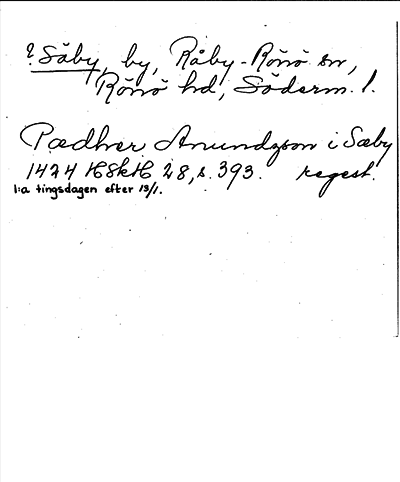 ? Säby, by, Råby-Rönö sn,
Rönö hd, Söderm. l.
Pædher Anundzson i Sæby
1474 HSkH 28, s. 393. regest.
1:a tingsdagen efter 13/1.